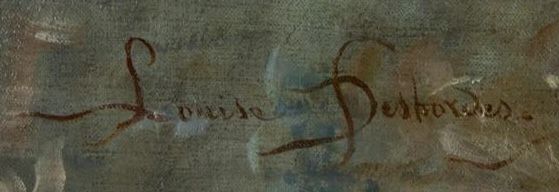 Louise Desbordes.